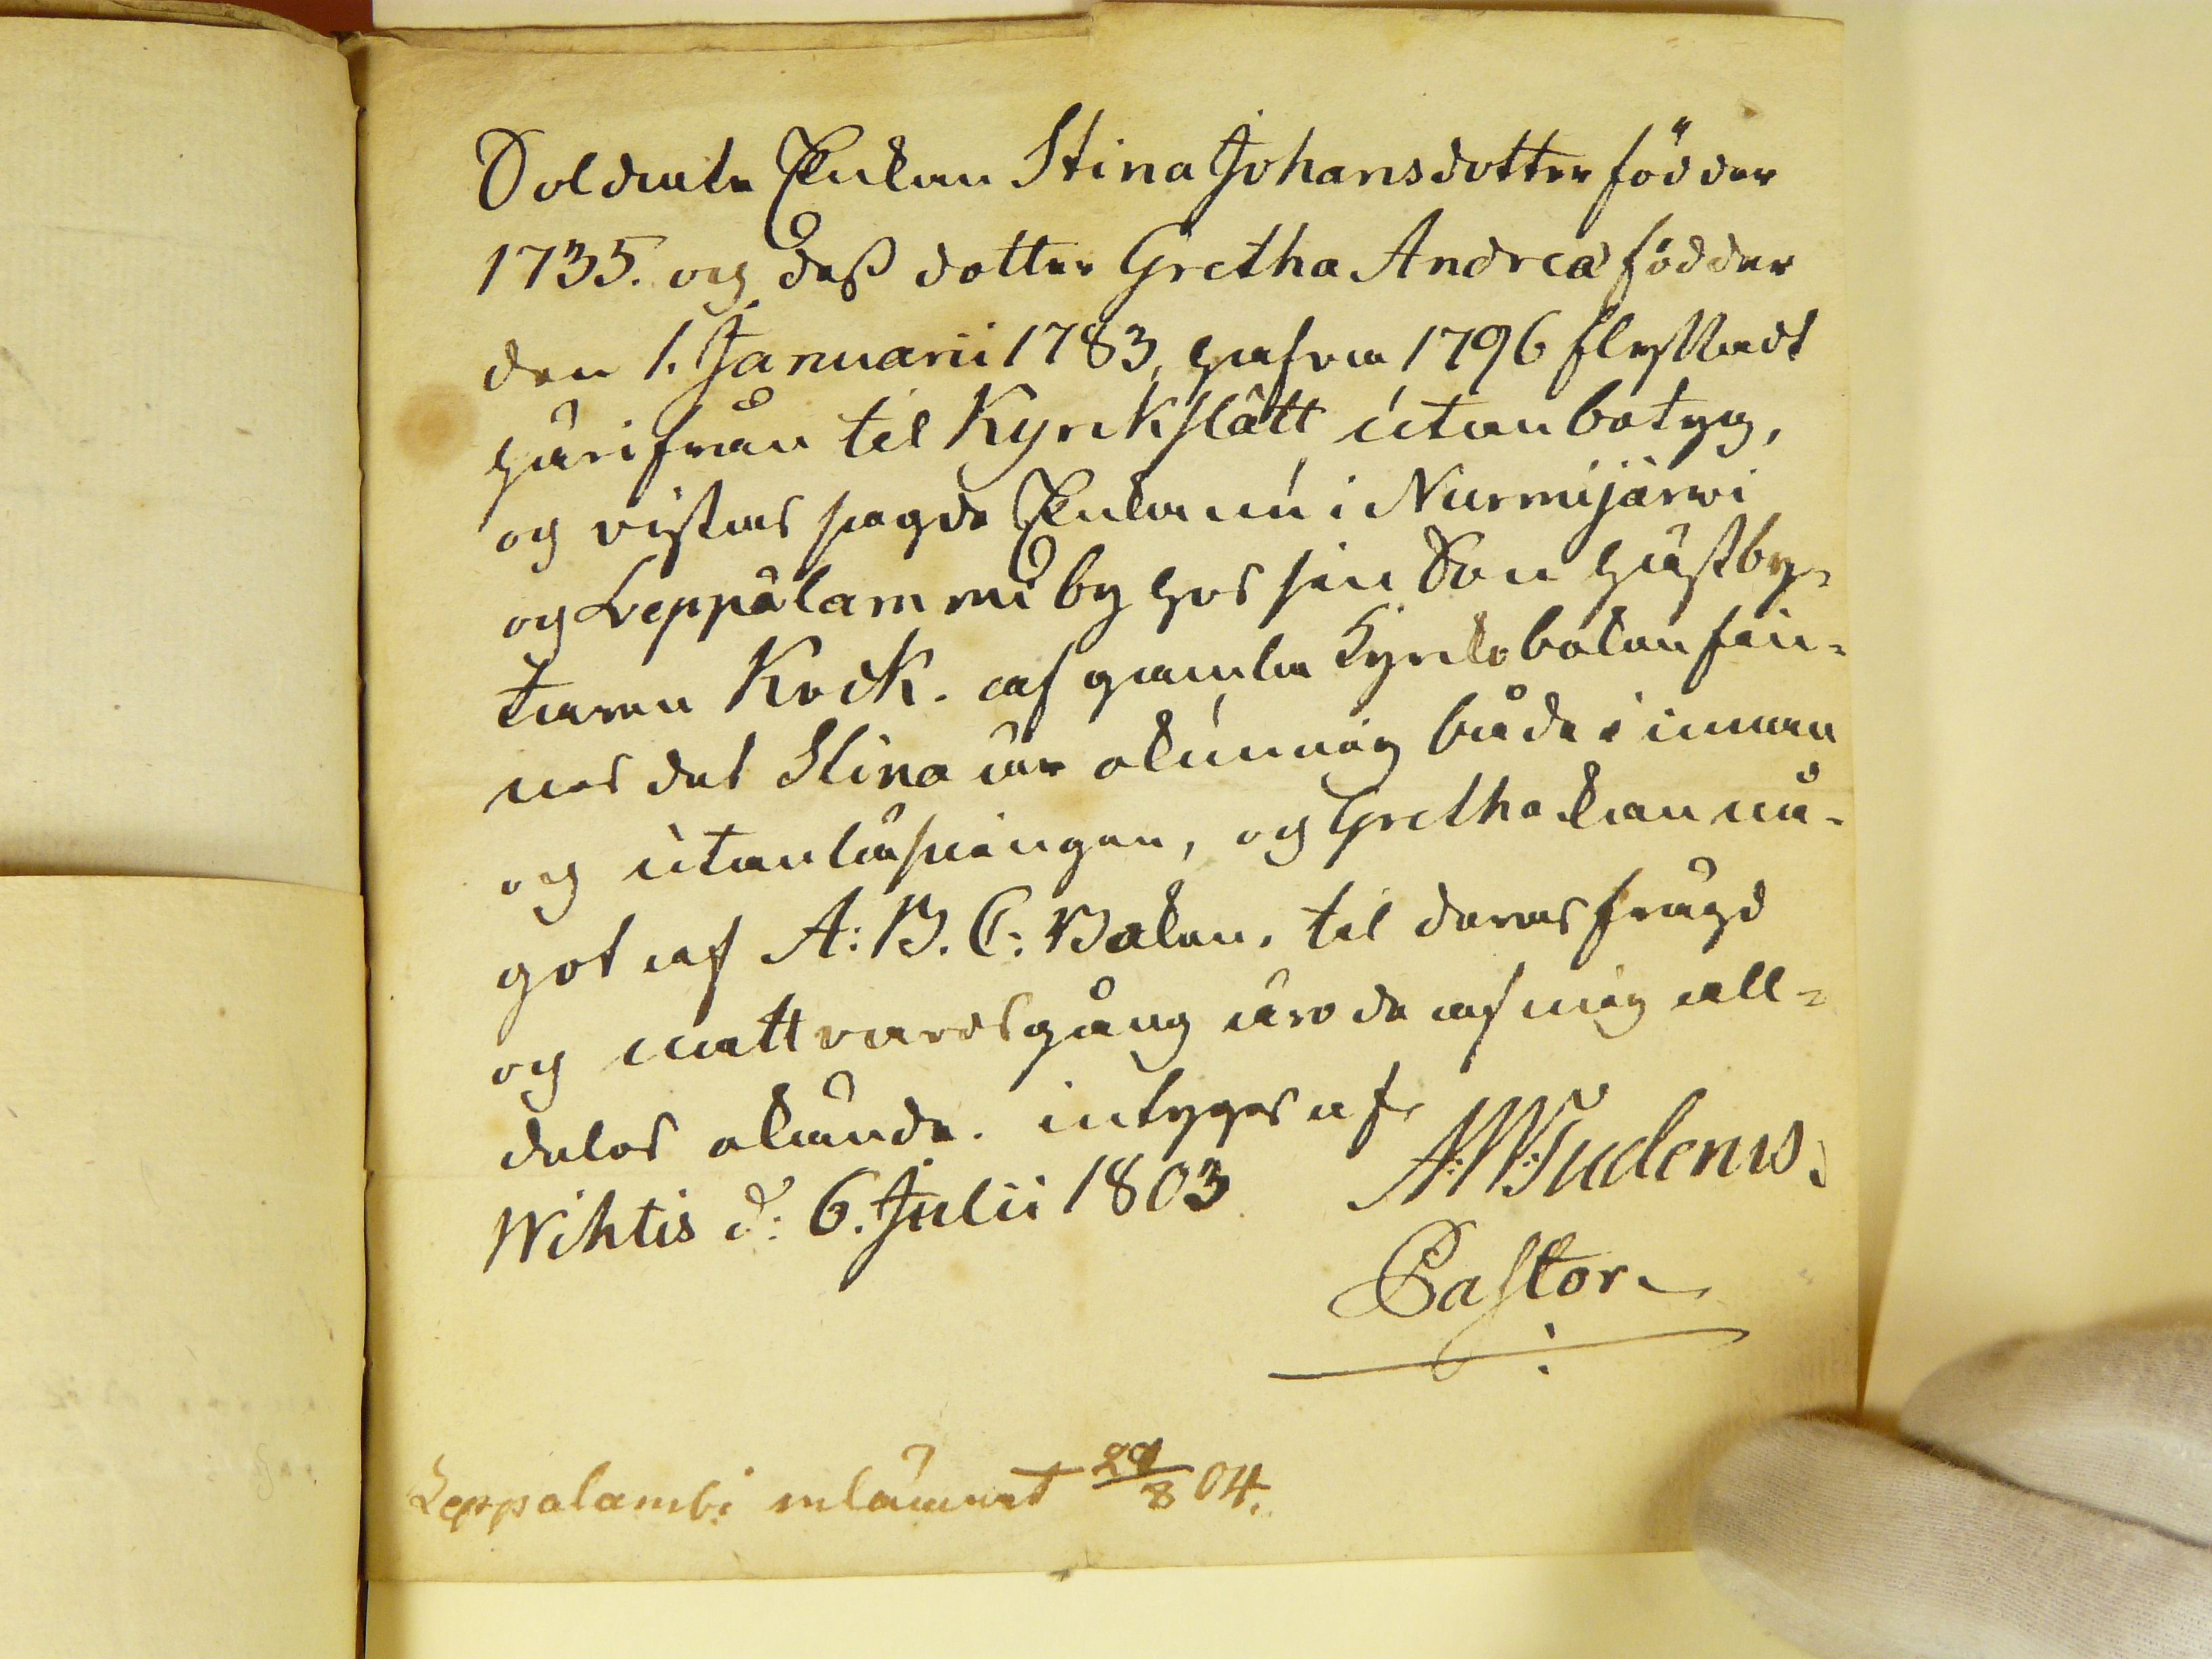 Soldate Enkan Stina Johansdotter född
1735. og deß dotter Gretha Andreæ född
den 1. Januarii 1783, hafva 1796 flyttadt
härifrån til Kyrkslätt utan betyg,
og vistas sagde Enka nu i Nurmijärwi
og Leppälammi by hos sin Son Gästby-
taren Kock. af gamla Kyrkobokan fin-
nes det Stina är okunnig både i innan
og utanläsningen, og Gretha kan nå-
got af A: B. C: Bokan, til deras frägd
og nattvardsgång äro de af mig all-
deles okände. intygas af
Wihtis d: 6. Julii 1803 A: W: Tudenius.
Pastor
Leppalambi inlämnat 29/8 04.